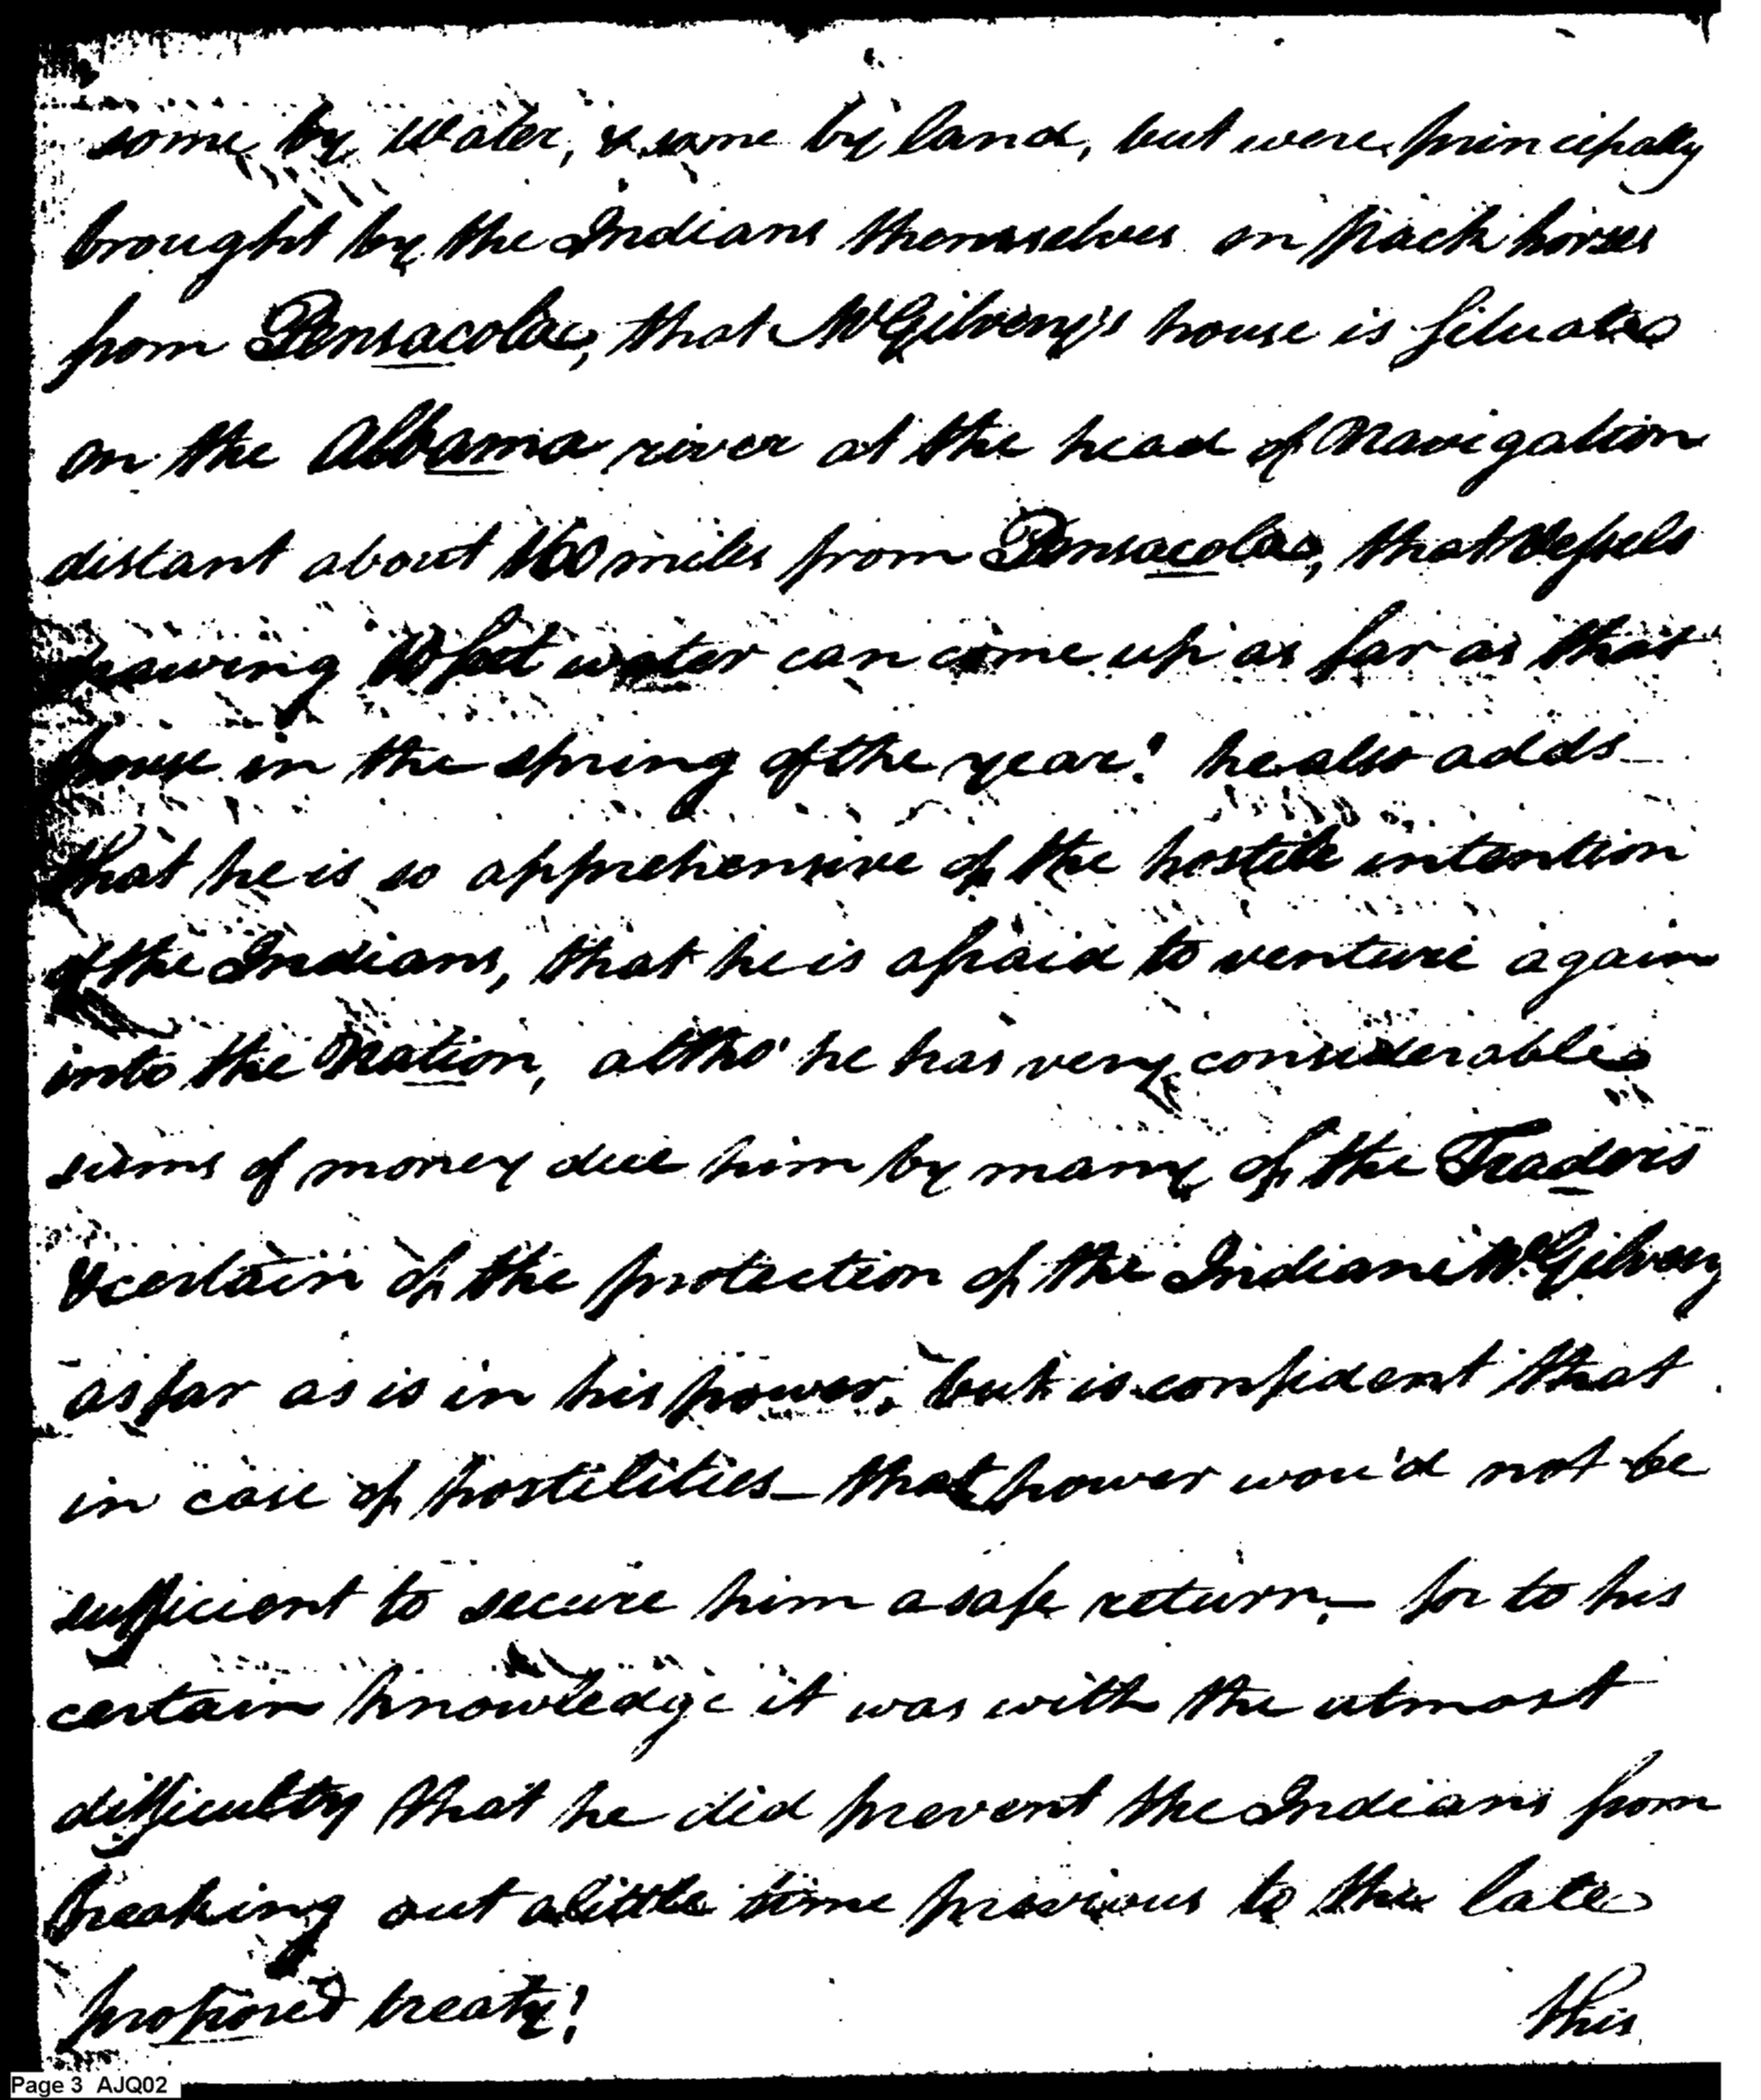 some by Water, & some by land, but were principally
brought by the Indians themselves on pack horses
from Pensacola, that McGilvery's house is situated
on the Albama river at the head of Navigation
distant about 160 miles from Pensacola, that Vessels
drawing 10 feet water can come up as far as that
house in the spring of the year! he also adds
that he is so apprehensive of the hostile intention
of the Indians, that he is afraid to venture again
into the Nation, altho' he has very considerable
sums of money due him by many of the Traders
& certain of the protection of the Indians McGilvery
as far as is in his power, but is confident that
in case of hostilities – that power wou'd not be
sufficient to secure him a safe return, – for to his
certain knowledge it was with the utmost
difficulty that he did prevent the Indians from
breaking out a little time previous to the late
proposed treaty!
this
Page 3 AJQ02